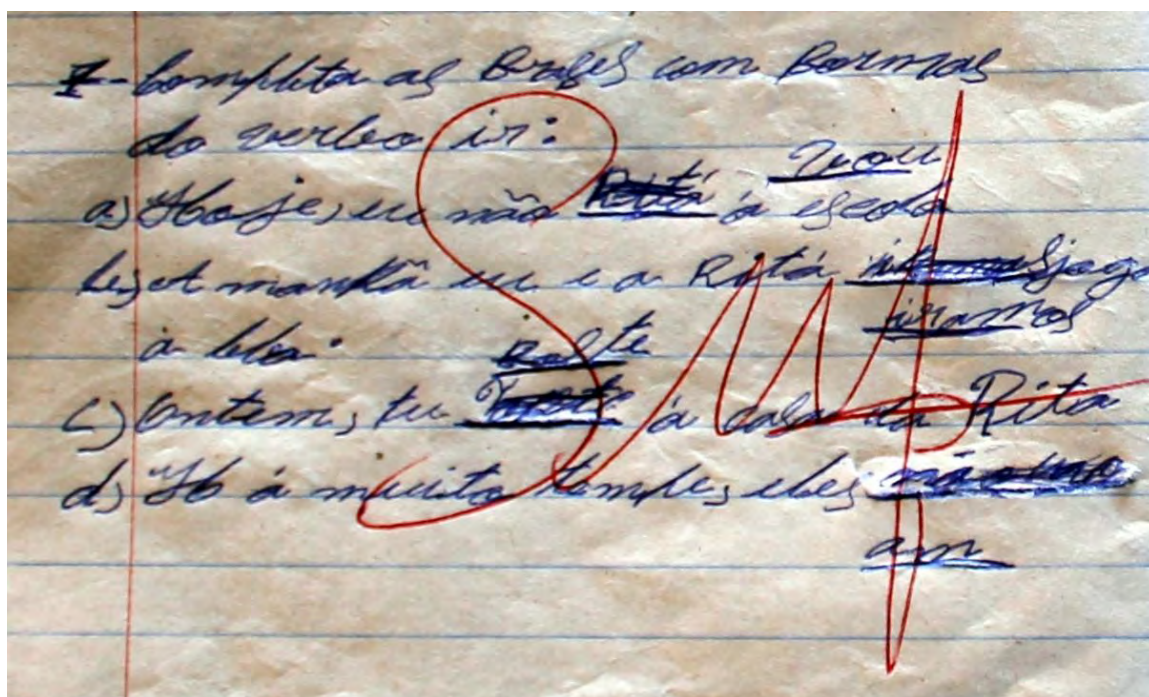 I - Completa as Frases com Formas
do verbo ir:
vou
a) Hoje, eu não à escola
b) A manhã eu e a Ritá joga
iramos
a bla.
c) Ontem, tu à casa da Rita
d) H á muito tempo, eles
am